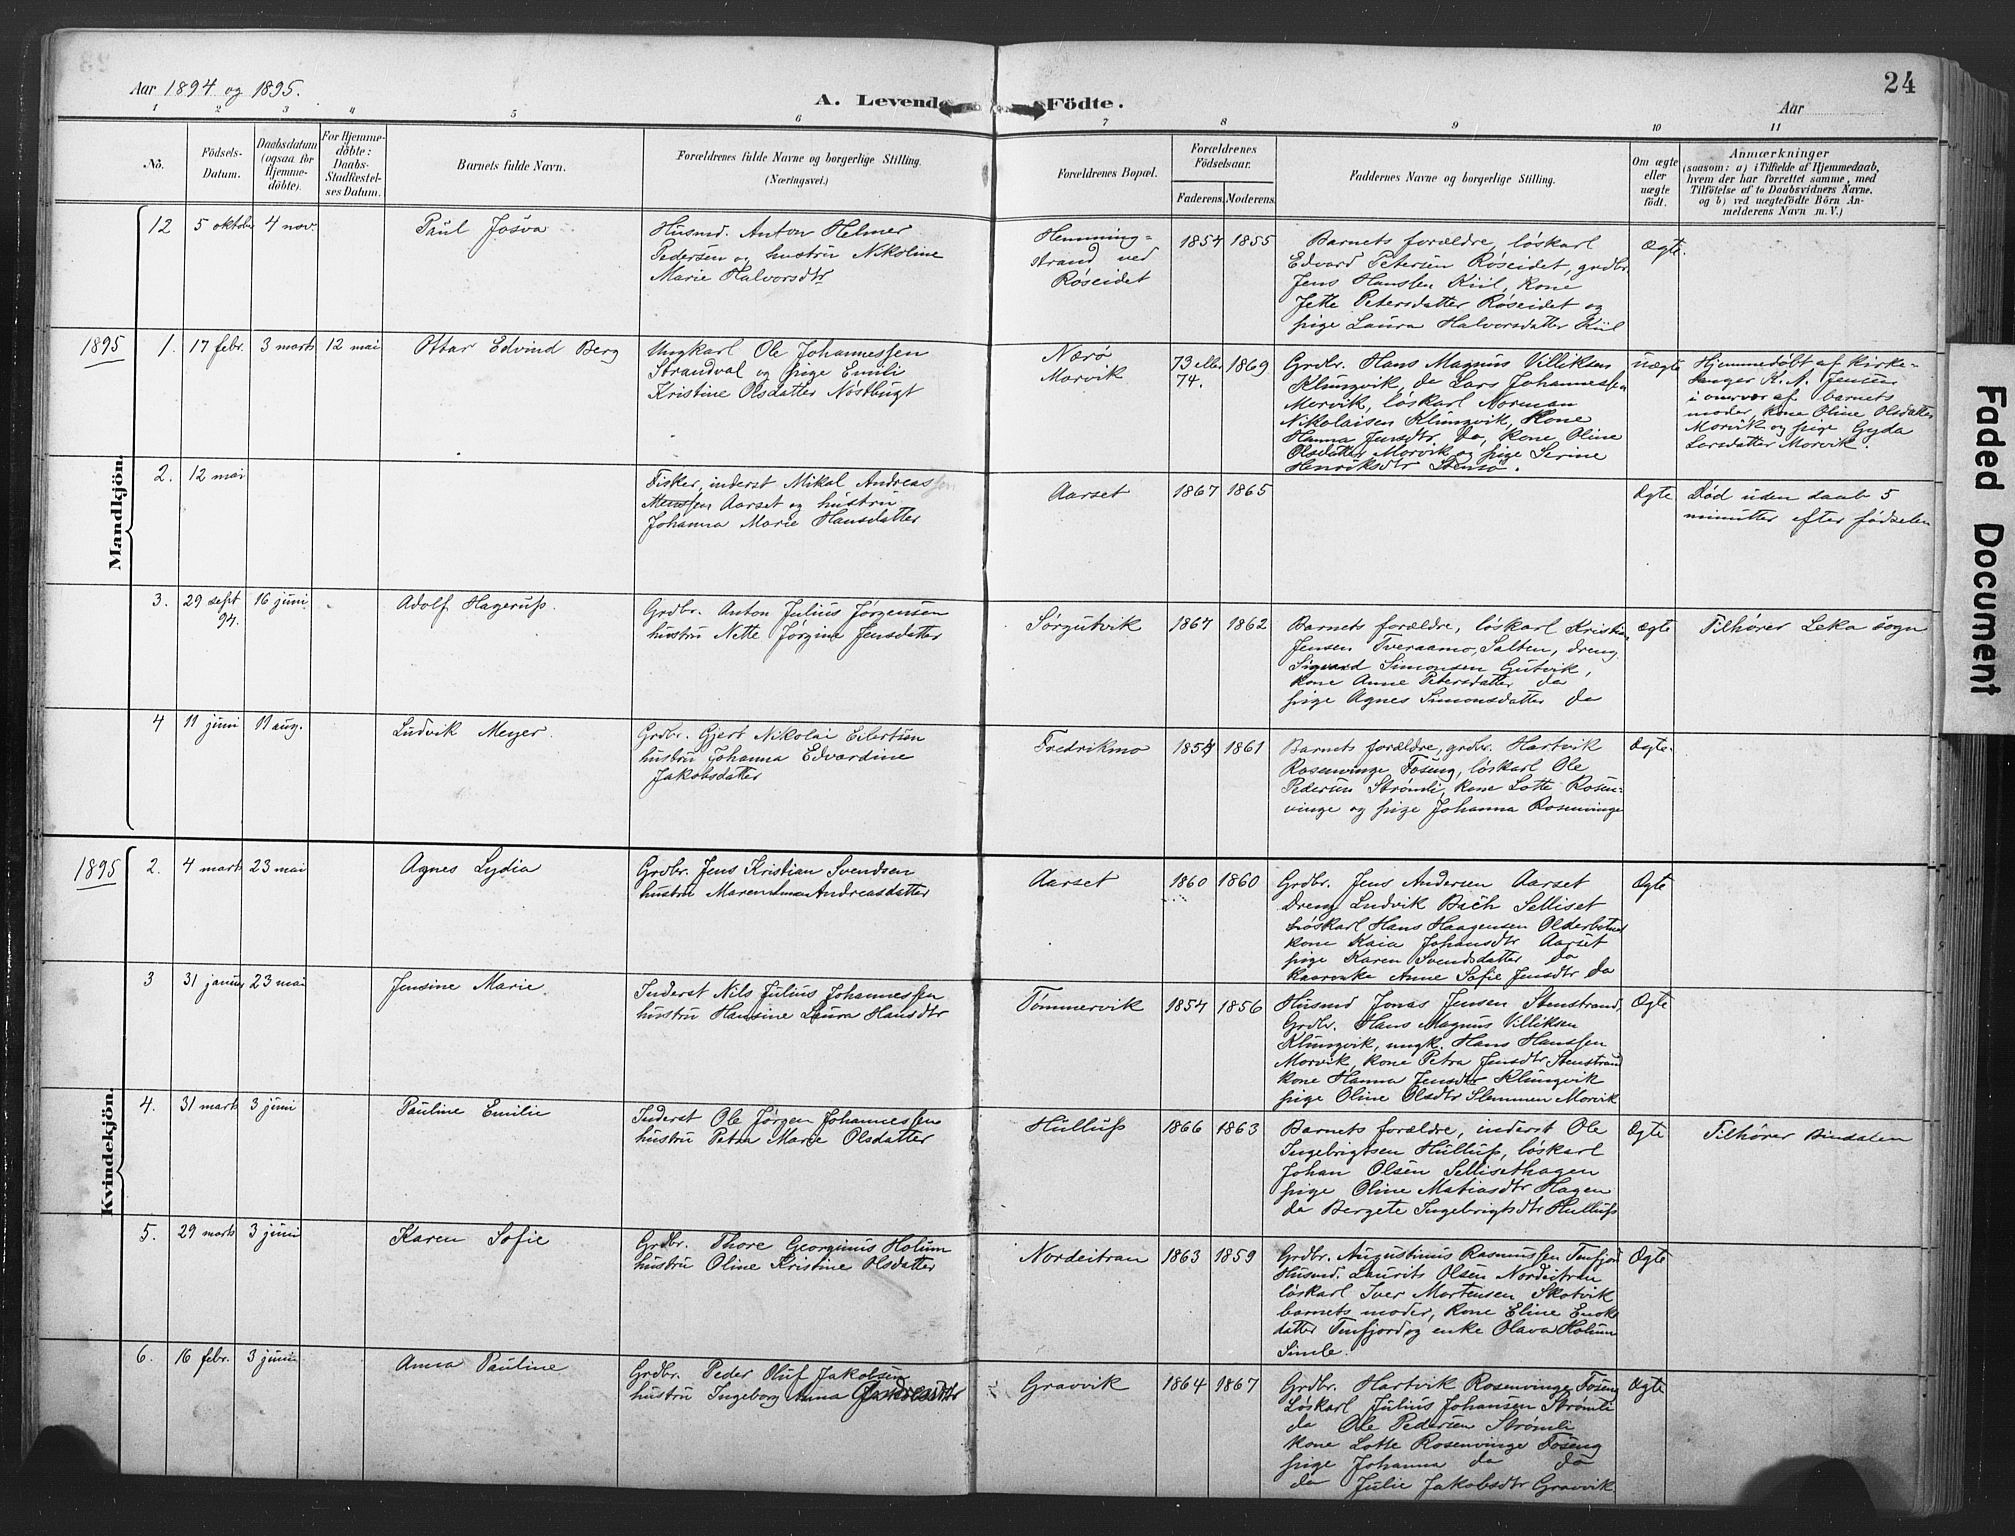 Aar 1894 og 1895.
A. Levende Födte.
Aar
24
1 2 3 4 5 6 7 8 9 10 11
No.
Födsels-
Datum.
Daabsdatum
(ogsaa for
Hjemme-
döbte).
For Hjemme-
döbte:
Daabs-
Stadfæstel-
ses Datum.
Barnets fulde Navn.
Forældrenes fulde Navne og borgerlige Stilling.
(Næringsvei.)
Forældrenes Bopæl.
Forældrenes
Födselsaar.
Faderens. Moderens.
Faddernes Navne og borgerlige Stilling.
Om ægte
eller
uægte
födt.
Anmærkninger
(saasom: a) i Tilfælde af Hjemmedaab,
hvem der har forrettet samme, med
Tilföielse af to Daabsvidners Navne.
og b) ved uægtefödte Börn An-
melderens Navn m. V.)
Mandkjön.
12 5 oktober 4 nov. Paul Josva
Husmd. Anton Helmer
Pedersen og hustru Nikoline
Marie Halvorsdtr
Hemming-
strand ved
Røseidet
1854 1855
Barnets forældre, løskarl
Edvard Petersen Røseidet, grdbr.
Jens Hanssen Kiil, kone
Jette Petersdatter Røseidet og
pige Laura Halvorsdatter Kiil
Ægte.
1895 1. 17 febr. 3 marts 12 mai Ottar Edvind Berg
Ungkarl Ole Johannessen
Strandval og pige Emili
Kristine Olsdatter Nøstbugt
Nærø
Morvik
73 eller
74.
1869
Grdbr. Hans Magnus Villiksen
Klungvik, da Lars Johannessen
Morvik, løskarl Norman
Nikolaisen Klungvik, Kone
Hanna Jensdtr. da, kone Oline
Olsdatter Morvik og pige Serine
Henriksdtr Stensø.
uægte
Hjemmedøbt af kirke-
sanger K. A. Jensen
i overvær af barnets
moder, kone Oline Olsdatter
Morvik og pige Gyda
Larsdatter Morvik.
2. 12 mai
Fisker, inderst Mikal Andreassen
Menssen Aarset og hustru
Johanna Marie Hansdatter
Aarset
1867 1865
Ægte
Død uden daab 5
minutter efter fødselen
3. 29 sept 94. 16 juni Adolf Hagerup.
Grdbr. Anton Julius Jørgensen
hustru Nette Jørgine Jensdatter
Sørgutvik
1867 1862
Barnets forældre, løskarl Kristian
Jensen Tveraamo, Salten, dreng
Sigvard Simonsen Gutvik,
kone Anne Petersdatter da
pige Agnes Simonsdatter da
ægte
Tilhører Leka sogn
4 11 juni 11 aug. Ludvik Meyer.
Grdbr. Gjert Nikolai Eilertsen
hustru Johanna Edvardine
Jakobsdatter
Fredrikmo
1854 1861
Barnets forældre, grdbr. Hartvik
Rosenvinge Foseng, løskarl Ole
Pedersen Strømli, kone Lotte Rosen-
vinge og pige Johanna Rosenvinge
Ægte.
Kvindekjön.
1895 2. 4 marts 23 mai Agnes Lydia
Grdbr. Jens Kristian Svendsen
hustru Maren Anna Andreasdatter
Aarset
1860 1860
Grdbr. Jens Andersen Aarset
Dreng Ludvik Bach Selliset
Løskarl Hans Haagensen Olderbotnet
kone Kaia Johansdtr Aarset
pige Karen Svendsdatter da
Anne Sofie Jensdtr da
Ægte
3 31 januar 23 mai Jensine Marie
Inderst Nils Julius Johannessen
hustru Hansine Laura Hansdtr
Tømmervik
1854 1856
Husmd Jonas Jensen Stenstrand,
Grdbr. Hans Magnus Villiksen
Klungvik, ungk. Hans Hanssen
Morvik, kone Petra Jensdtr Stenstrand
kone Hanna Jensdtr Klungvik
pige Oline Olsdtr Slemmen Morvik
Ægte
4. 31 marts 3 juni Pauline Emilie
Inderst Ole Jørgen Johannessen
hustru Petra Marie Olsdatter
Hullup
1866 1863
Barnets forældre, inderst Ole
Ingebrigtsen Hullup, løskarl
Johan Olsen Sellisethagen
pige Oline Matiasdtr Hagen
da Bergete Ingebrigtsdtr Hullup
Ægte
Tilhører Bindalen
5. 29 marts 3 juni Karen Sofie
Grdbr. Thore Georginus Holum
hustru Oline Kristine Olsdatter
Nordeitran
1863 1859
Grdbr. Augustinus Rasmussen Tenfjord
Husmd. Laurits Olsen Nordeitran
løskarl Iver Mortensen Skotvik
barnets moder, kone Eline Enoks
datter Tenfjord og enke Olava Holum
Simle.
Ægte
6. 16 febr. 3 juni Anna Pauline
Grdbr. Peder Oluf Jakobsen
hustru Ingeborg Anna Andreasdtr
Gravvik
1864 1867
Grdbr. Hartvik Rosenvinge Foseng
Løskarl Julius Johansen Strømli
da Ole Pedersen Strømli
kone Lotte Rosenvinge Foseng
pige Johanna da da
da Julie Jakobsdtr Gravvik
Ægte
Faded Document